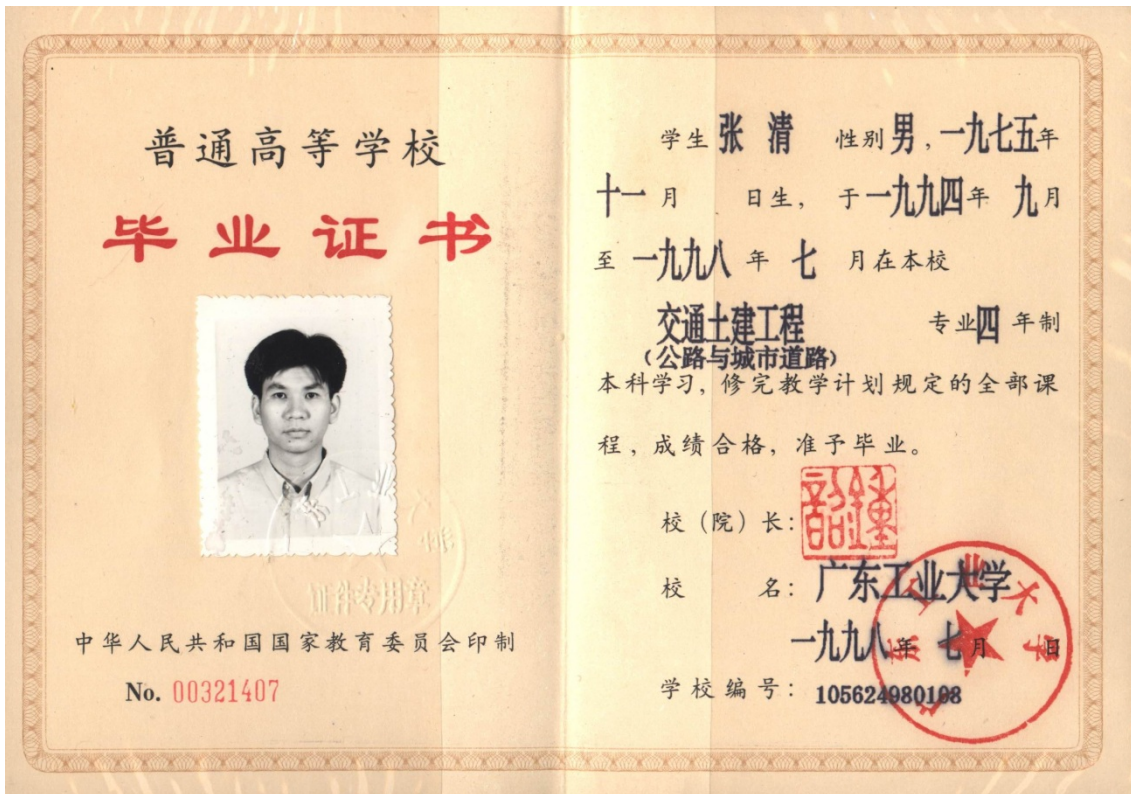 普通高等学校
毕业证书
证件专用章
中华人民共和国国家教育委员会印制
No. 00321407
学生 张清 性别 男，一九七五年
十一月 日生，于一九九四年 九月
至 一九九八 年 七 月在本校
交通土建工程 专业四 年制
（公路与城市道路）
本科学习，修完教学计划规定的全部课
程，成绩合格，准予毕业。
校（院）长：
校 名：广东工业大学
一九九八年 七月 日
学校编号：105624980108
广东工业大学